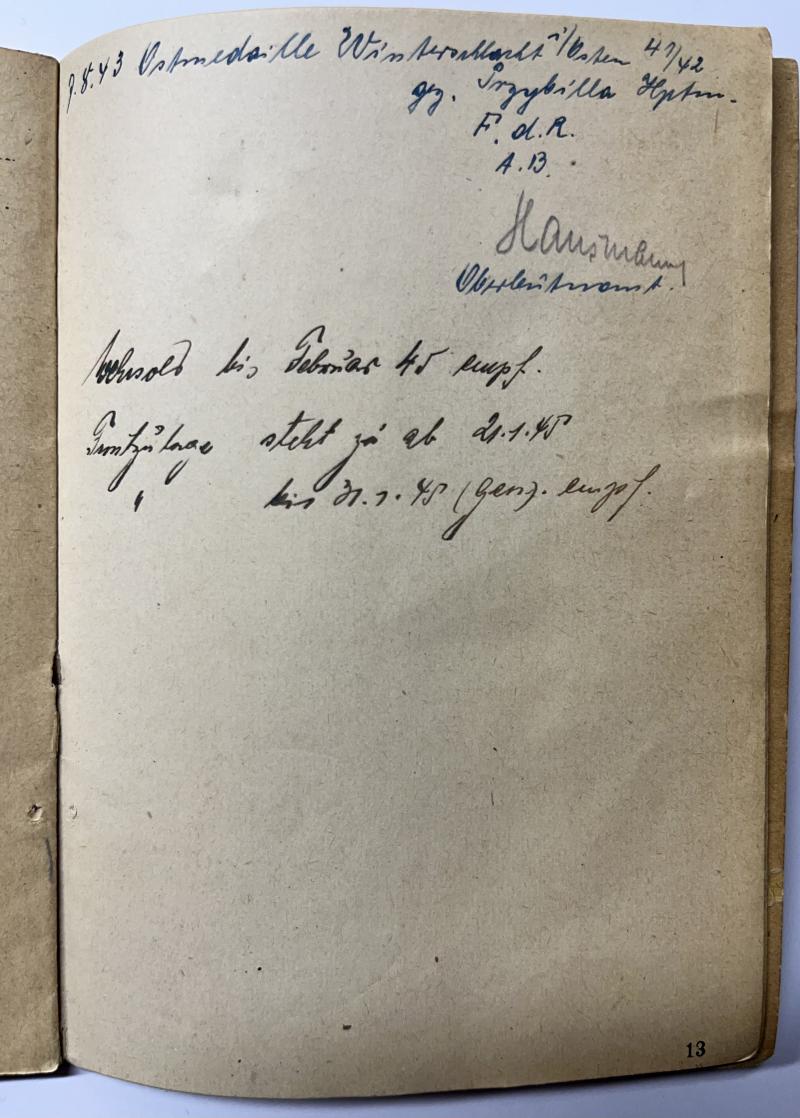 9.8.43 Ostmedaille Winterschlacht i/Osten 41/42
gez. Przybilla Hptm.
F. d. R.
A. B.
Hausmann
Oberleutnant.
Wehrsold bis Februar 45 empf.
Frontzulage steht zu ab 21.1.45
" bis 31.1.45 empf.
13